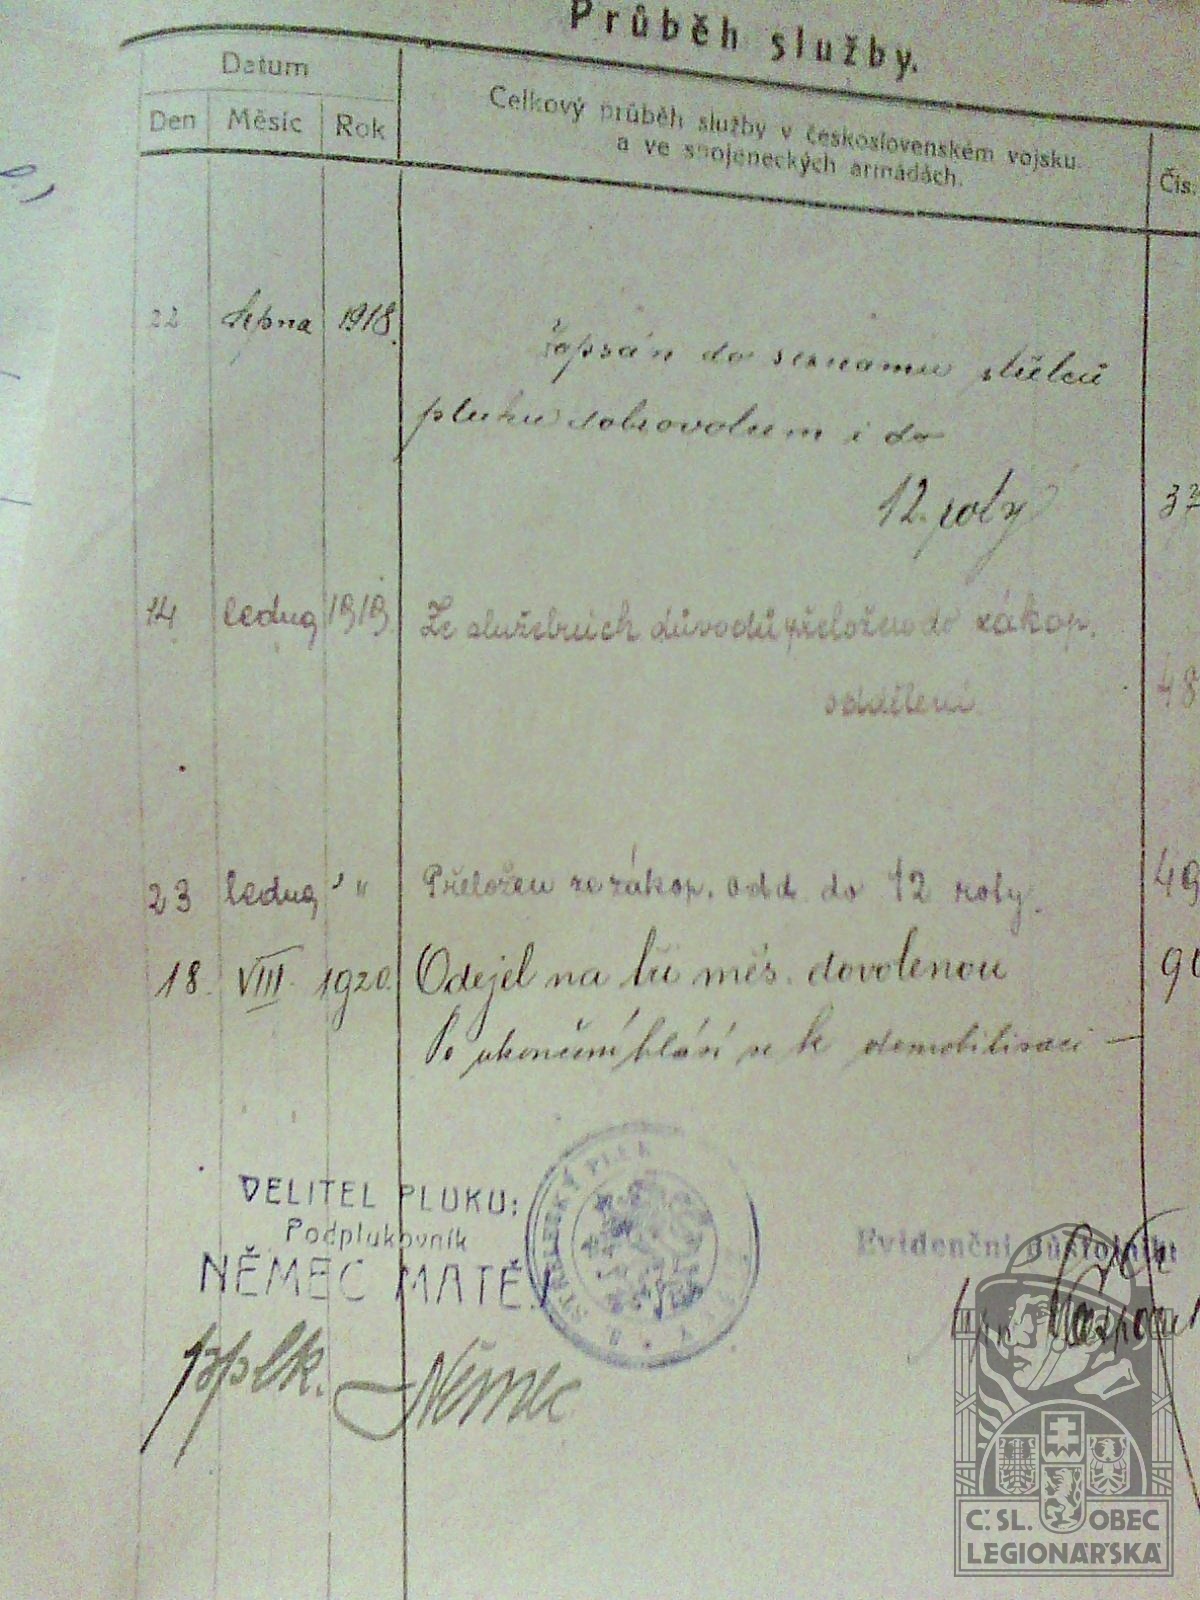 Průběh služby.
Datum
Den Měsíc Rok
Celkový průběh služby v československém vojsku
a ve spojeneckých armádách.
Čís.
22 srpna 1918.
do seznamu střelců
pluku dobrovolcem i do
12. roty
14 ledna 1919. Ze služebních důvodů přeložen do zákop.
oddělení
48
23 ledna " Přeložen ze zákop. odd. do 12 roty.
49
18. VIII. 1920. Odejel na tří měs. dovolenou
Po ukončení hlásí se k demobilisaci —
VELITEL PLUKU:
Podplukovník
NĚMEC MATĚJ
STŘELECKÝ PLUK
pplk. Němec
Evidenční důstojník:
Č. SL. OBEC
LEGIONÁŘSKÁ